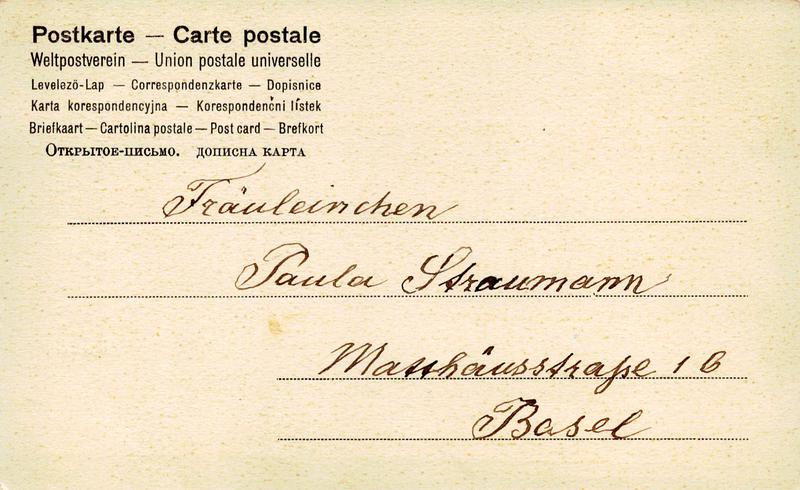 Postkarte — Carte postale
Weltpostverein — Union postale universelle
Levelező-Lap — Correspondenzkarte — Dopisnice
Karta korespondencyjna — Korespondenční lístek
Briefkaart — Cartolina postale — Post card — Brefkort
Открытое-письмо. дописна карта
Fräuleinchen
Paula Straumann
Matthäusstraße 16
Basel